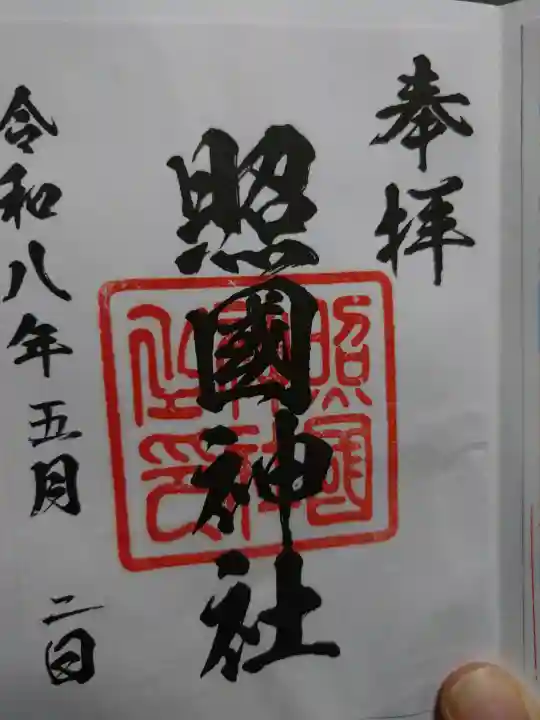 奉拝
照國神社
照國神社之印
令和八年五月二日